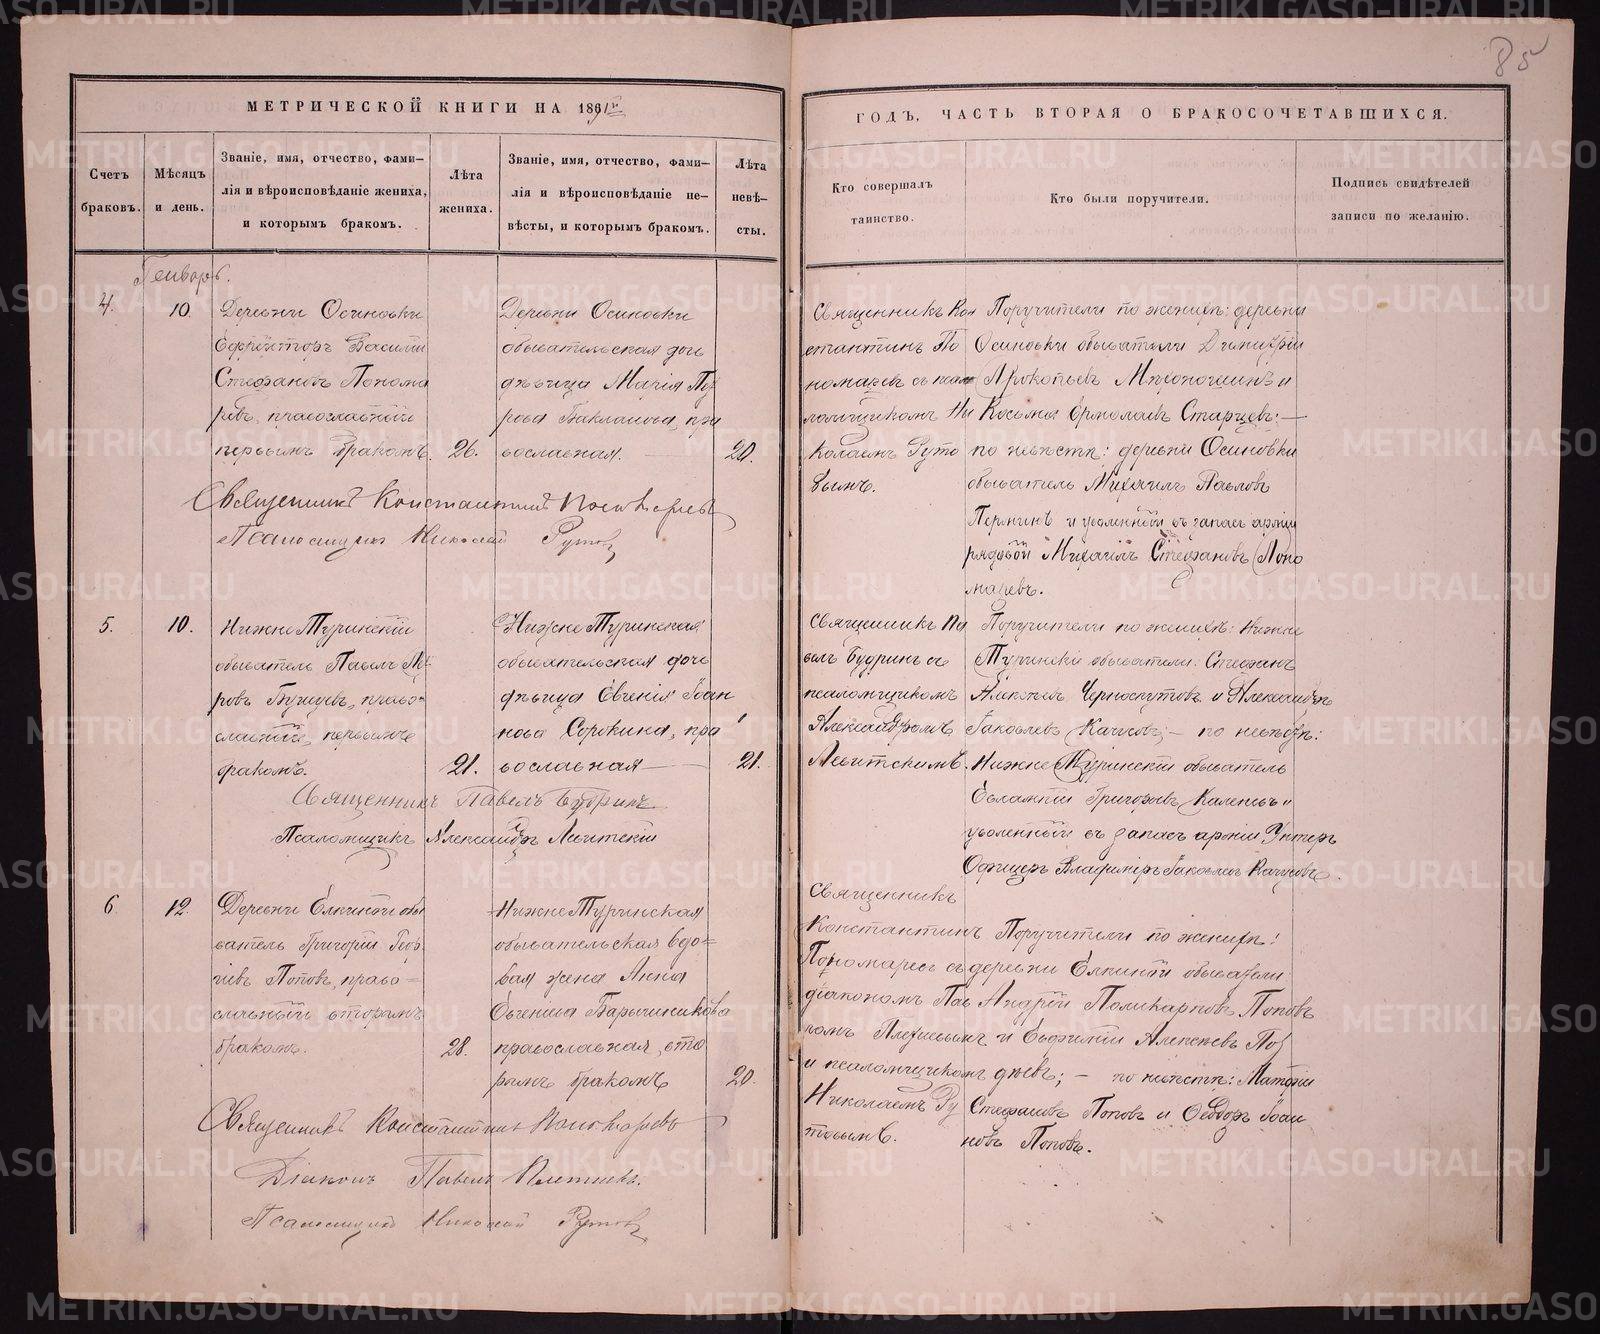 85
МЕТРИЧЕСКОЙ КНИГИ НА 1891й
ГОДЪ, ЧАСТЬ ВТОРАЯ О БРАКОСОЧЕТАВШИХСЯ.
Счетъ
браковъ.
Мѣсяцъ
и день.
Званіе, имя, отчество, фами-
лія и вѣроисповѣданіе жениха,
и которымъ бракомъ.
Лѣта
жениха.
Званіе, имя, отчество, фами-
лія и вѣроисповѣданіе не-
вѣсты, и которымъ бракомъ.
Лѣта
невѣ-
сты.
Кто совершалъ
таинство.
Кто были поручители.
Подпись свидѣтелей
записи по желанію.
Генварь.
4.
10.
Деревни Осиновки
Ефрейторъ Василій
Стефановъ Понома
ревъ, православный
первымъ бракомъ.
26.
Деревни Осиновки
обывательская дочь
дѣвица Марія
Бакланова, пра
вославная.
20.
Священникъ Кон
стантинъ По
номаревъ съ псал
ломщикомъ Ни
колаемъ Руто
вымъ.
Поручители по женихѣ: деревни
Осиновки обыватели Димитрій
Прокопьевъ и
Косьма Ермолаевъ Старцевъ; —
по невѣстѣ: деревни Осиновки
обыватель Михаилъ Павловъ
и уволенный въ запасъ арміи
рядовой Михаилъ Стефановъ Поно
маревъ.
Священникъ Константинъ Пономаревъ
Псаломщикъ Николай Рутовъ
5.
10.
НижнеТуринскій
обыватель Павелъ
православный, первымъ
бракомъ.
21.
НижнеТуринская
обывательская дочь
дѣвица Евгенія Іоан
нова Сорокина, пра
вославная —
21.
Священникъ Па
велъ Будринъ съ
псаломщикомъ
Александромъ
Левитскимъ.
Поручители по женихѣ: Нижне
Туринскіе обыватели: Стефанъ
Алексѣевъ Черноскутовъ и Александръ
Іаковлевъ Качусовъ; — по невѣстѣ:
НижнеТуринскій обыватель
Евлампій Григорьевъ и
уволенный въ запасъ арміи Унтеръ
Офицеръ Владиміръ Іаковлевъ Качусовъ.
Священникъ Павелъ Будринъ
Псаломщикъ Александръ Левитскій
6
12.
Деревни Елкиной обы
ватель Григорій Геор
гіевъ Поповъ, право=
славный вторымъ
бракомъ.
28.
НижнеТуринская
обывательская вдо=
вая жена Анна
Евгеніева Барышникова
православная, вто
рымъ бракомъ
20.
Священникъ
Константинъ
Пономаревъ съ
діакономъ Пав
ломъ Плетневымъ
и псаломщикомъ
Николаемъ Ру
товымъ.
Поручители по женихѣ:
деревни Елкиной обыватели
Андрей Поликарповъ Поповъ
и Евфимій Алексѣевъ
по невѣстѣ: Матѳій
Стефановъ Поповъ и Ѳеодоръ Іоан
новъ Поповъ.
Священникъ Константинъ Пономаревъ
Діаконъ Павелъ Плетневъ.
Псаломщикъ Николай Рутовъ